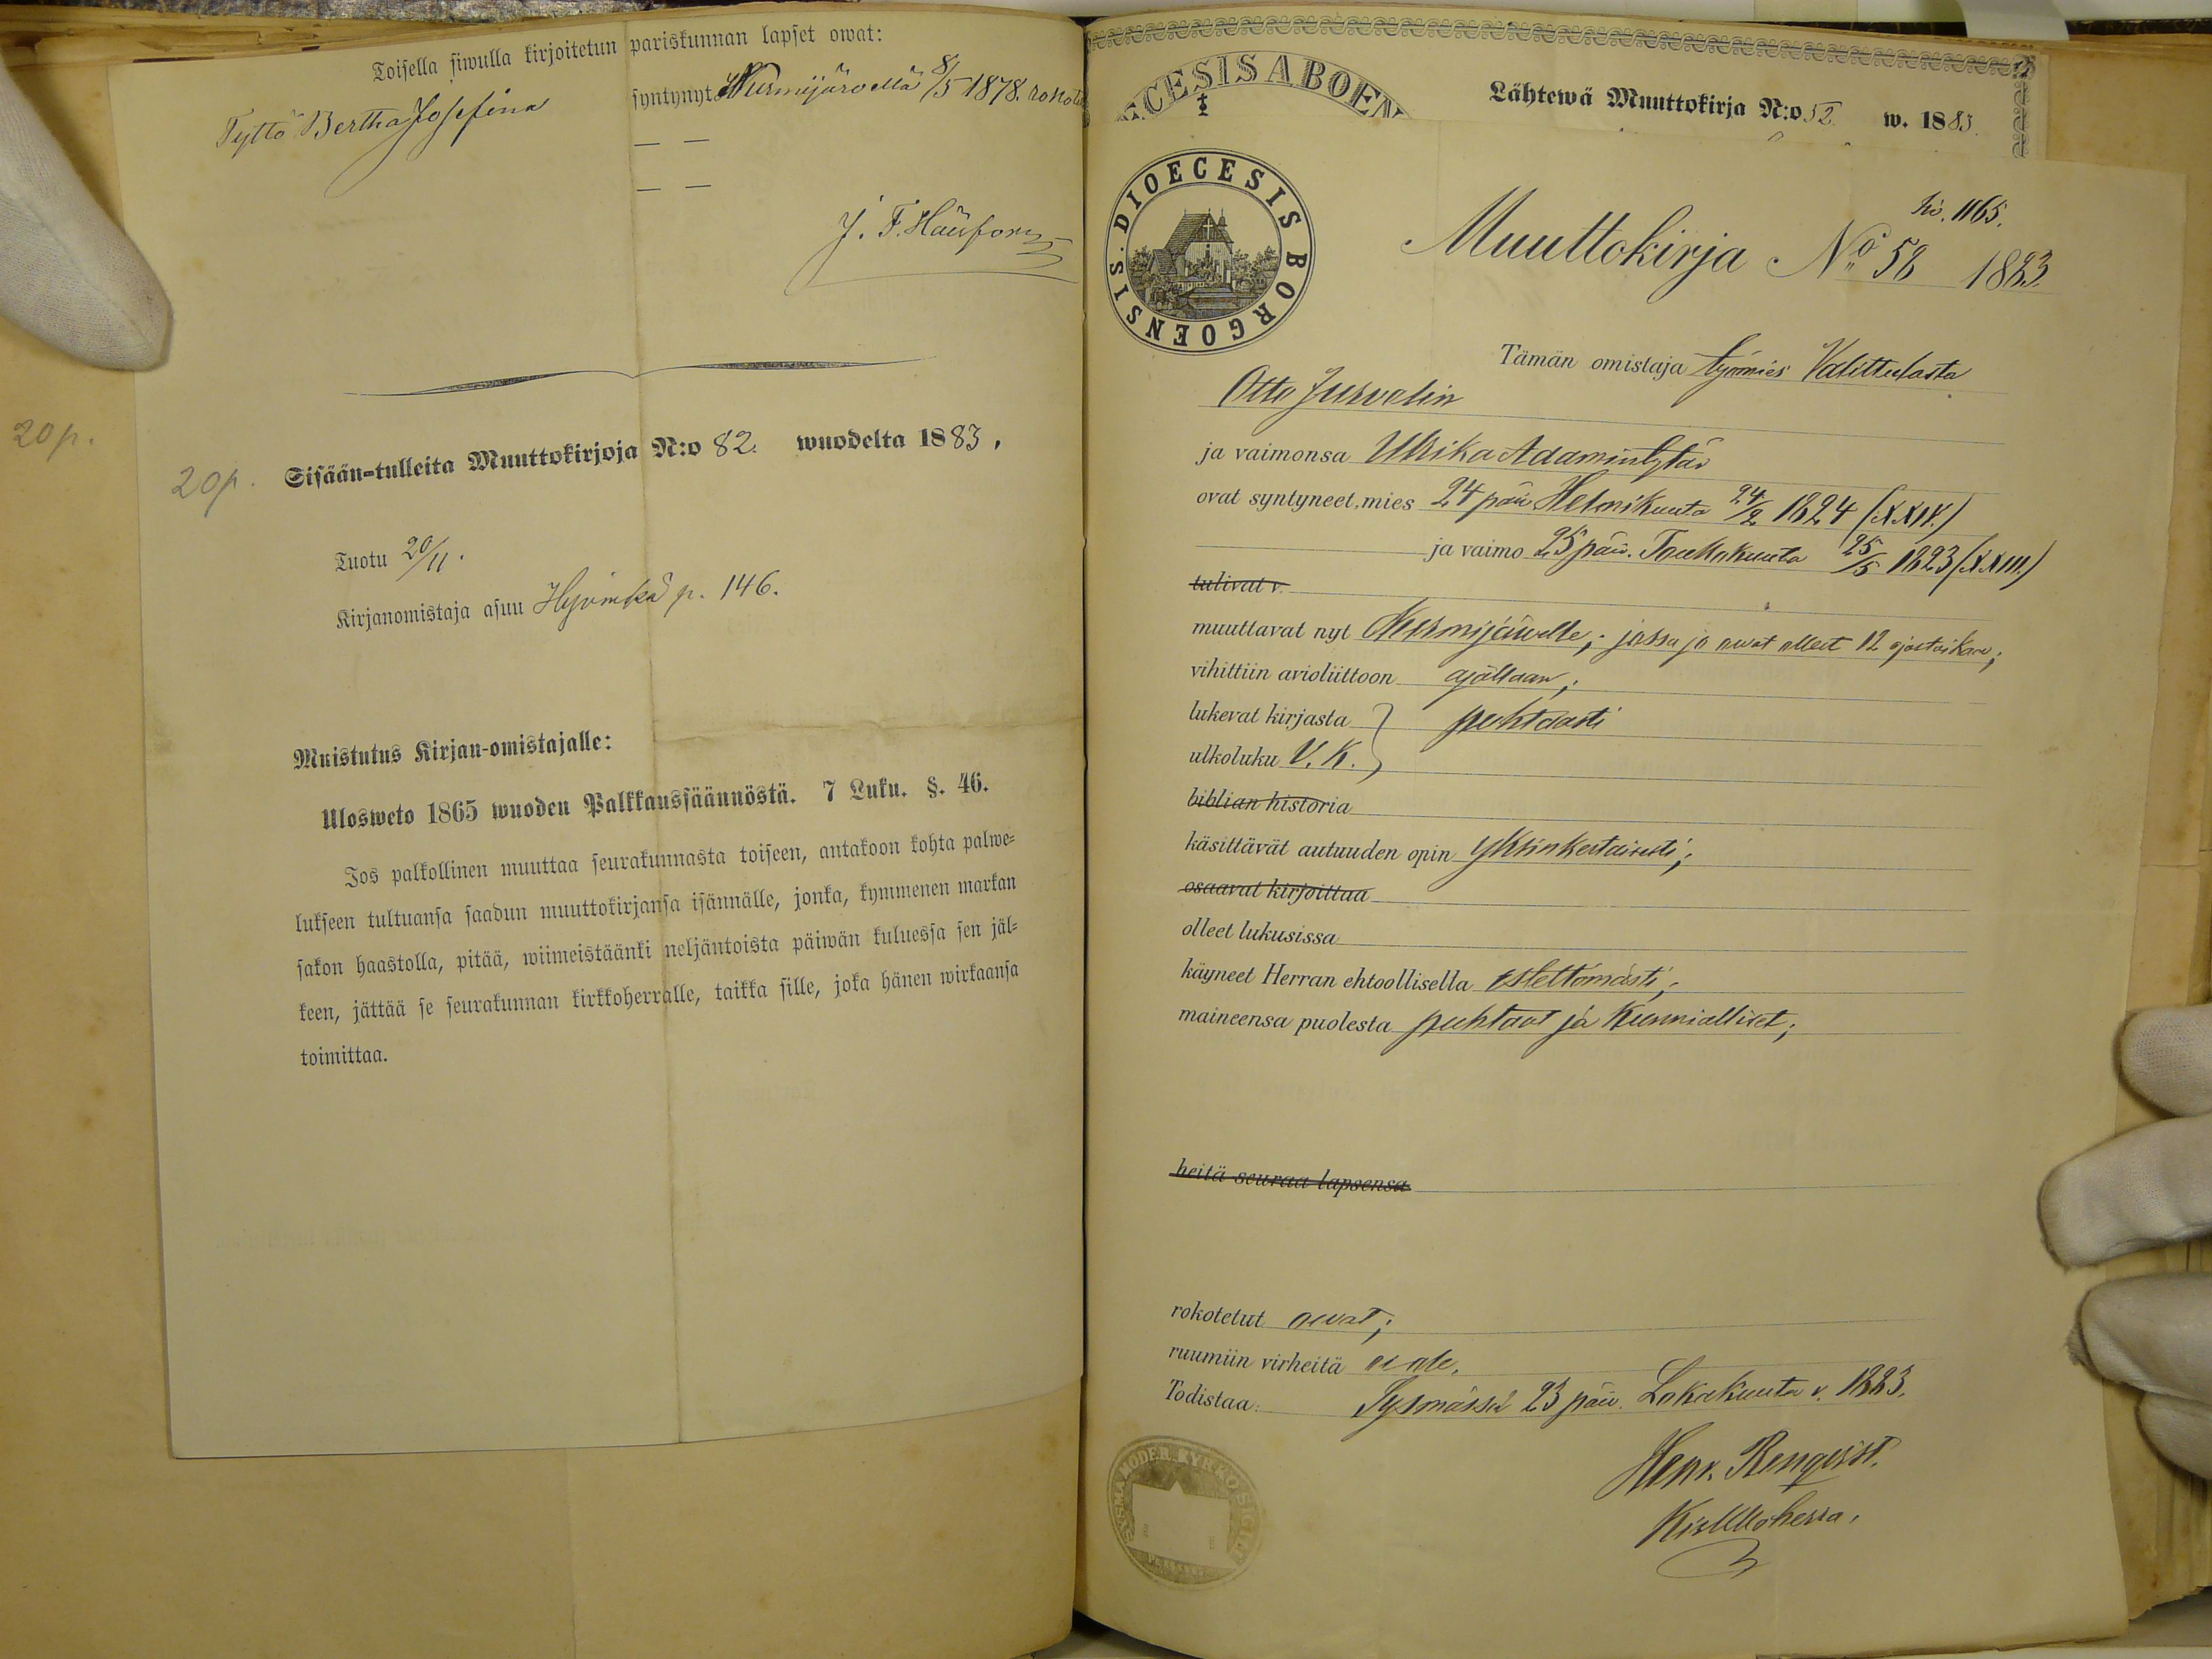 Toisella siwulla kirjoitetun pariskunnan lapset owat:
Tyttö Bertha Josefina syntynyt Nurmijärvellä 8/5 1878. rokot
— —
— —
20 p.
20 p. Sisään-tulleita Muuttokirjoja N:o 82. wuodelta 1883.
Tuotu 20/11.
Kirjanomistaja asuu Hyvinkä p. 146.
Muistutus Kirjan-omistajalle:
Ulosweto 1865 wuoden Palkkaussäännöstä. 7 Luku. §. 46.
Jos palkollinen muuttaa seurakunnasta toiseen, antakoon kohta palwe=
lukseen tultuansa saadun muuttokirjansa isännälle, jonka, kymmenen markan
sakon haastolla, pitää, wiimeistäänki neljäntoista päiwän kuluessa sen jäl=
keen, jättää se seurakunnan kirkkoherralle, taikka sille, joka hänen wirkaansa
toimittaa.
ECESIS ABOEN
Lähtewä Muuttokirja N:o 52. w. 1883.
DIOECESIS BORGOENSIS.
1165.
Muuttokirja No 58 1883.
Tämän omistaja työmies Valittulasta
Otto Jurvelin
ja vaimonsa Ulrika Adamintytär
ovat syntyneet, mies 24 päiv. Helmikuuta 24/2 1824 (XXIV.)
ja vaimo 25 päiv. Toukokuuta 25/5 1823 (XXIII.)
tulivat v.
muuttavat nyt Nurmijärvelle; jossa jo owat olleet 12 ajastaikaa;
vihittiin avioliittoon ajallaan;
lukevat kirjasta } puhtaasti
ulkoluku V. K.
biblian historia
käsittävät autuuden opin yksinkertaisesti;
osaavat kirjoittaa
olleet lukusissa
käyneet Herran ehtoollisella estettömästi;
maineensa puolesta puhtaat ja kunnialliset;
heitä seuraa lapsensa
rokotetut owat;
ruumiin virheitä ei ole.
Todistaa: Sysmässä 23 päiv. Lokakuuta v. 1883.
Henr. Renqvist.
Kirkkoherra.
SYSMÄ MODER KYRKO SIGILL